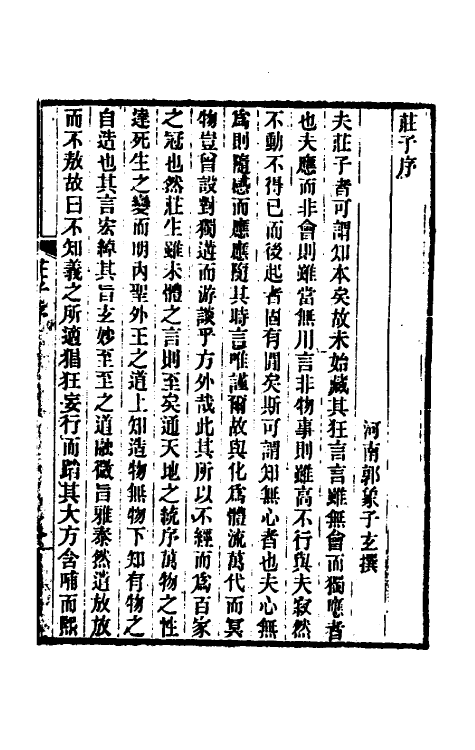 莊子序
河南郭象子玄撰
夫莊子者可謂知本矣故未始藏其狂言言雖無會而獨應者
也夫應而非會則雖當無用言非物事則雖高不行與夫寂然
不動不得已而後起者固有間矣斯可謂知無心者也夫心無
爲則隨感而應應隨其時言唯謹爾故與化爲體流萬代而冥
物豈曾設對獨遘而游談乎方外哉此其所以不經而爲百家
之冠也然莊生雖未體之言則至矣通天地之統序萬物之性
達死生之變而明內聖外王之道上知造物無物下知有物之
自造也其言宏綽其旨玄妙至至之道融微旨雅泰然遣放放
而不敖故曰不知義之所適猖狂妄行而蹈其大方含哺而熙